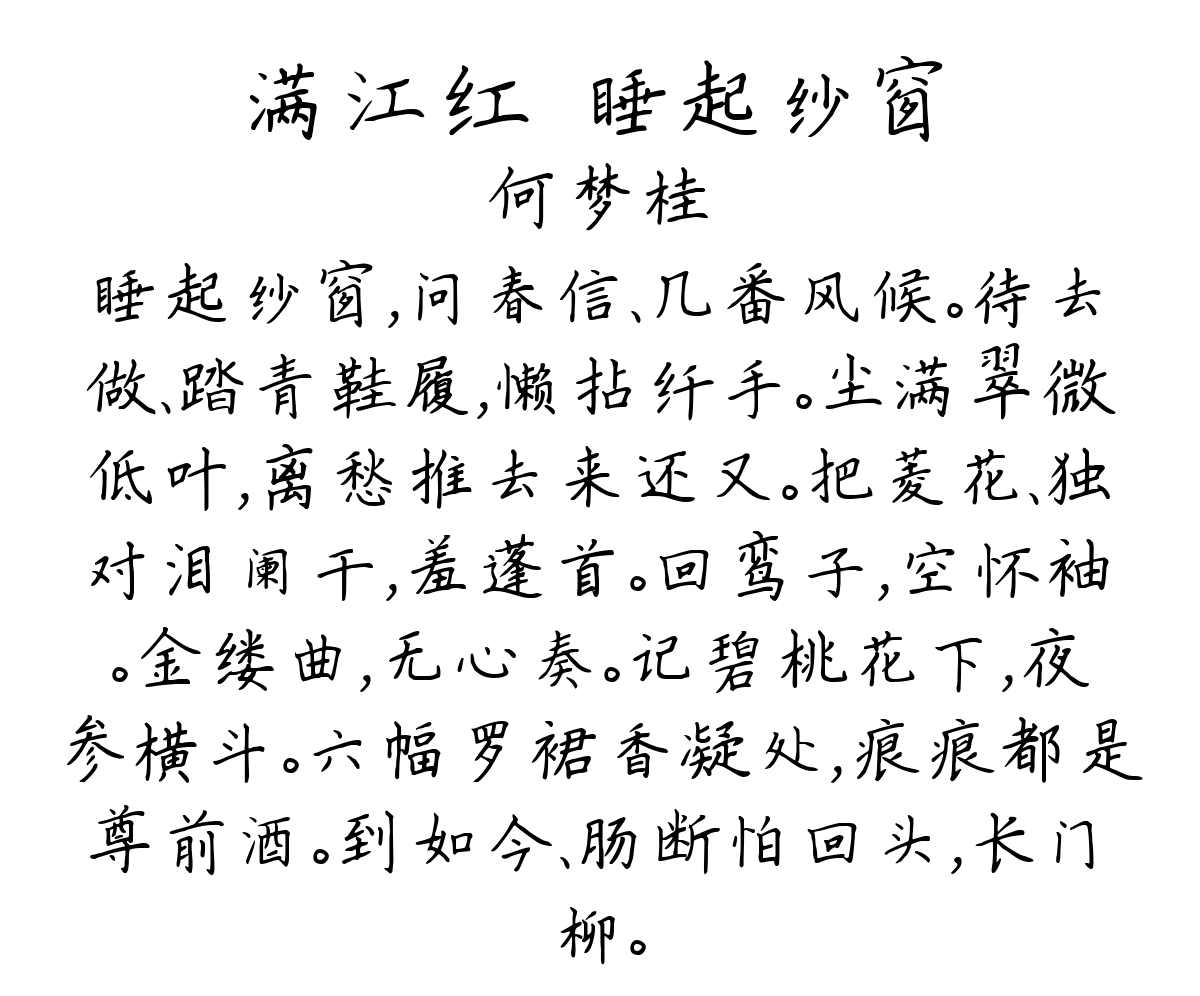 满江红 睡起纱窗
何梦桂
睡起纱窗,问春信、几番风候。待去
做、踏青鞋履,懒拈纤手。尘满翠微
低叶,离愁推去来还又。把菱花、独
对泪阑干,羞蓬首。回鸾子,空怀袖
。金缕曲,无心奏。记碧桃花下,夜
参横斗。六幅罗裙香凝处,痕痕都是
尊前酒。到如今、肠断怕回头,长门
柳。